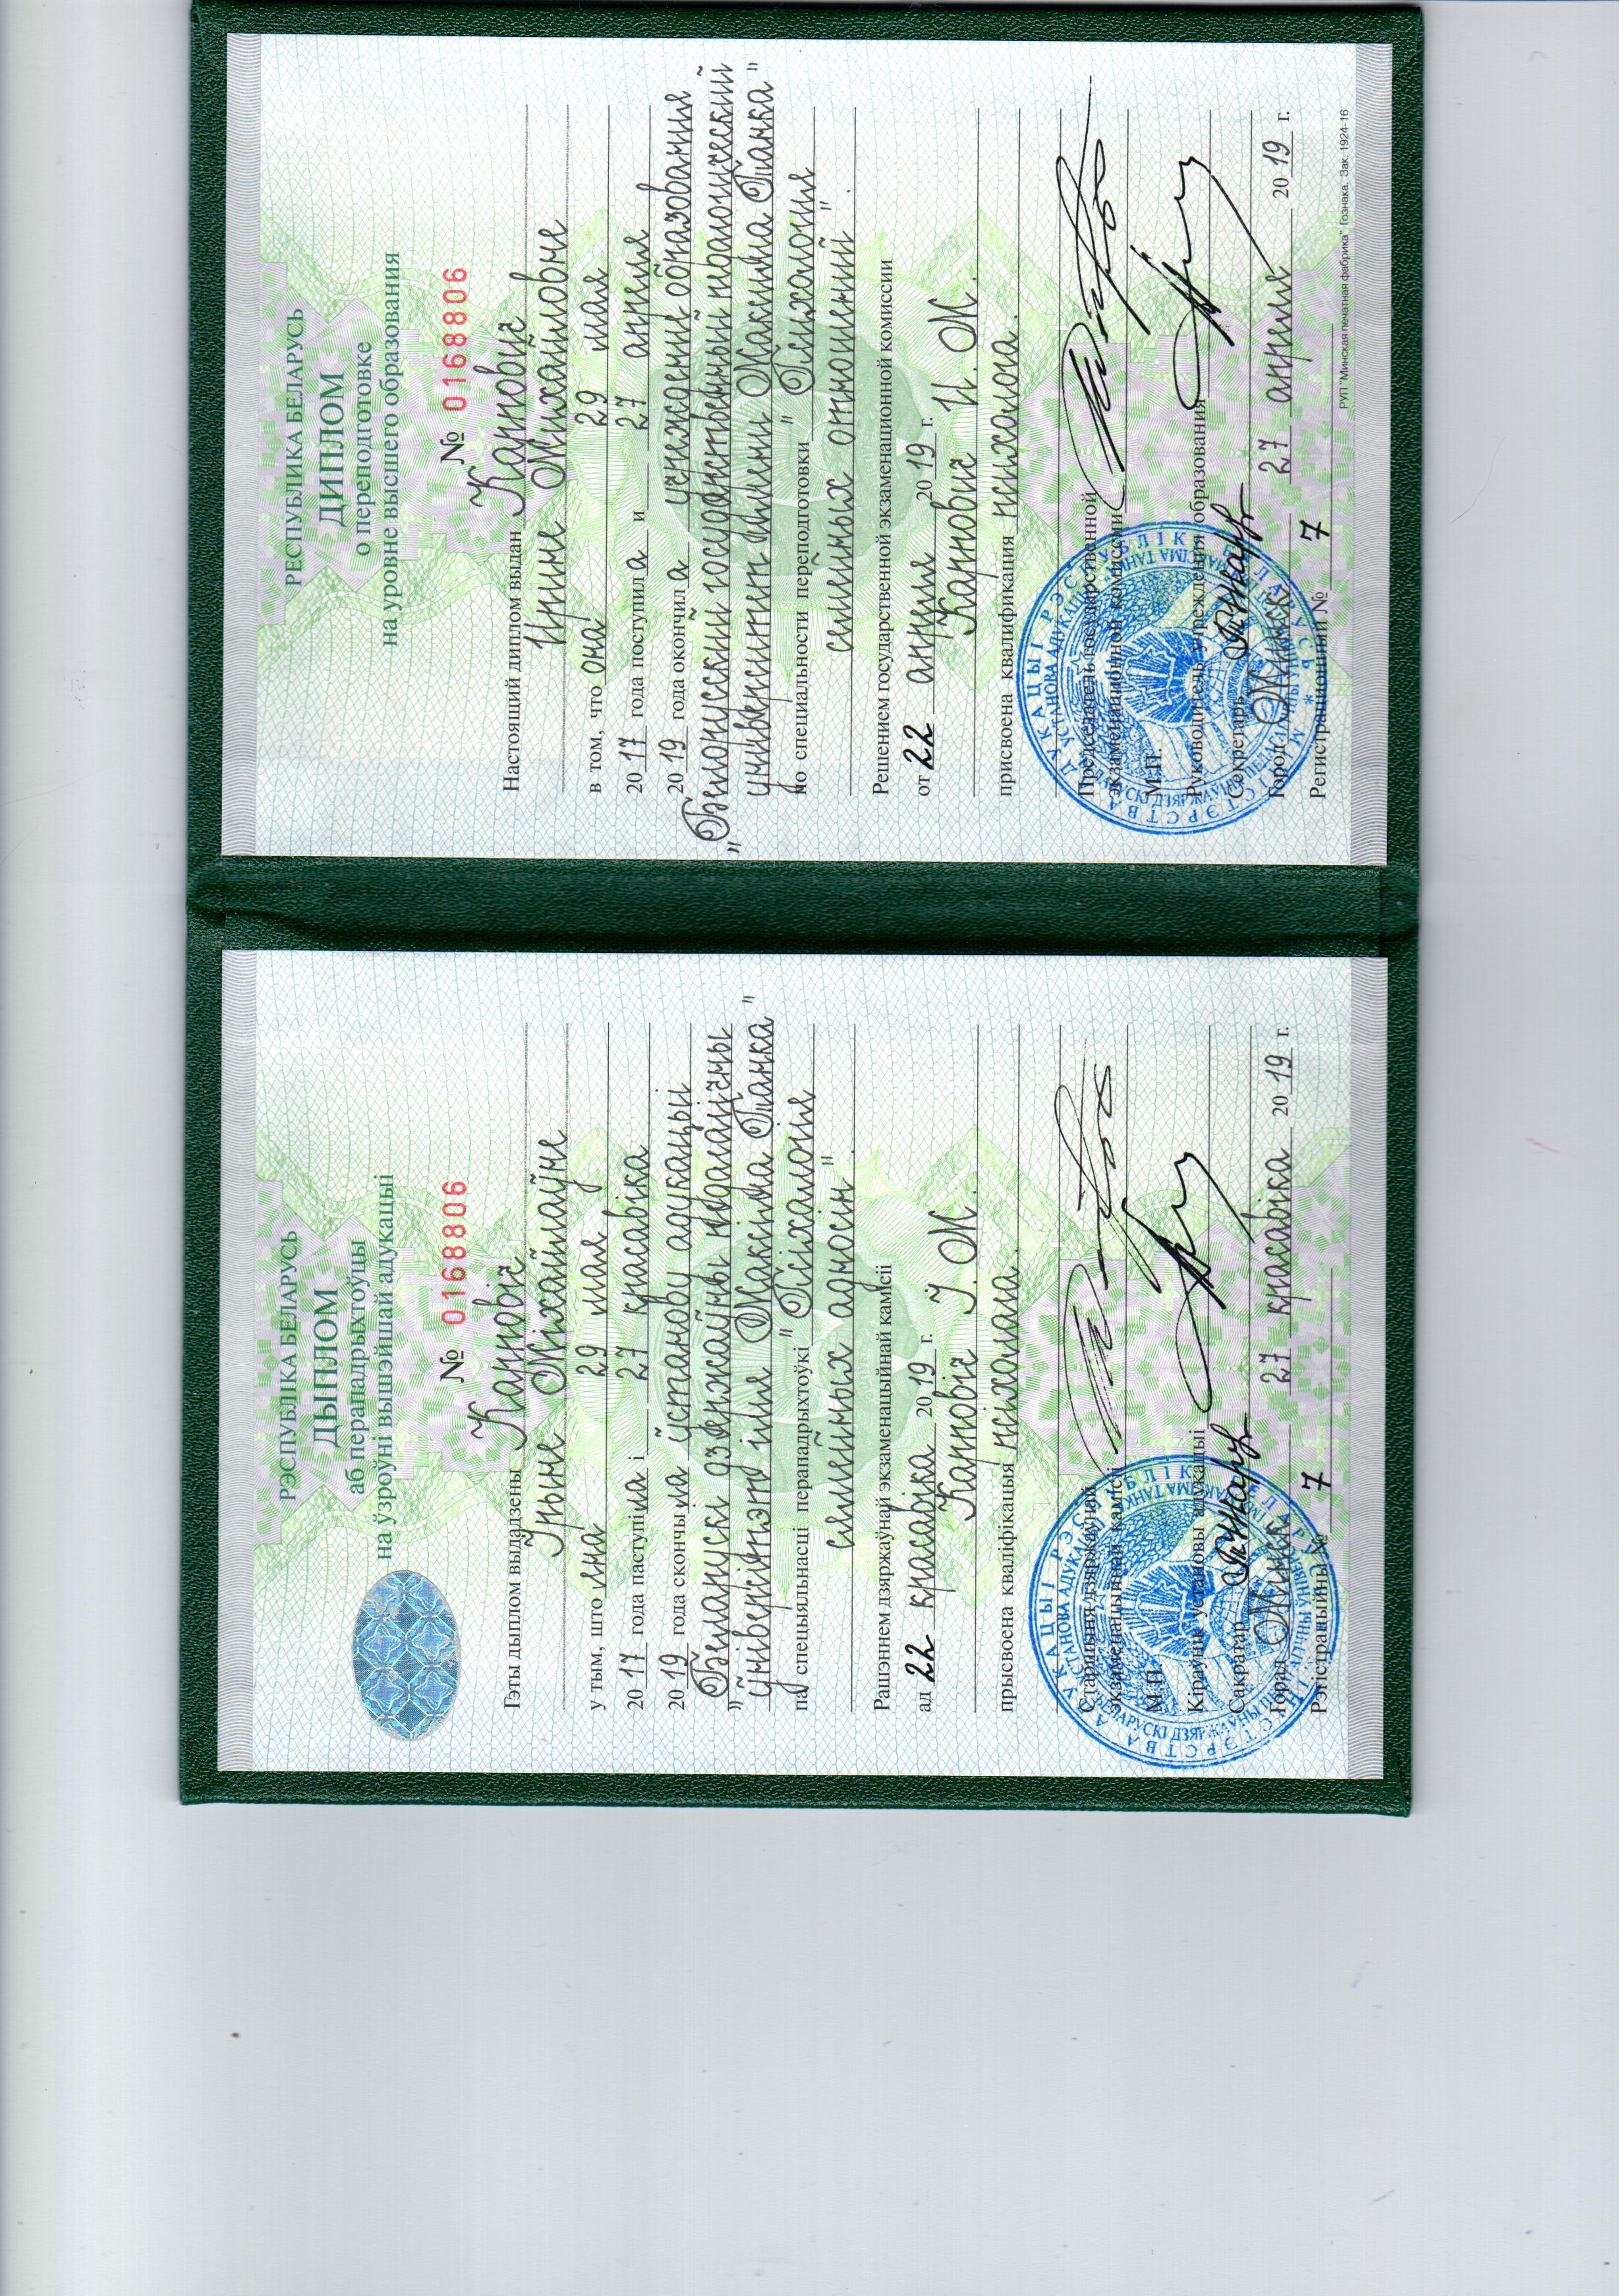 РЭСПУБЛІКА БЕЛАРУСЬ
ДЫПЛОМ
аб перападрыхтоўцы
на ўзроўні вышэйшай адукацыі
№ 0168806
Гэты дыплом выдадзены Карповіч
Ірыне Міхайлаўне
у тым, што яна 29 мая
20 17 года паступіла і 27 красавіка
20 19 года скончыла ўстанову адукацыі
"Беларускі дзяржаўны педагагічны
ўніверсітэт імя Максіма Танка"
па спецыяльнасці перападрыхтоўкі "Псіхалогія
сямейных адносін".
Рашэннем дзяржаўнай экзаменацыйнай камісіі
ад 22 красавіка 20 19 г.
Карповіч І. М.
прысвоена кваліфікацыя псіхолага.
Старшыня дзяржаўнай
экзаменацыйнай камісіі
М.П.
Кіраўнік установы адукацыі
Сакратар
Горад Мінск 27 красавіка 20 19 г.
Рэгістрацыйны № 7
РЕСПУБЛИКА БЕЛАРУСЬ
ДИПЛОМ
о переподготовке
на уровне высшего образования
№ 0168806
Настоящий диплом выдан Карпович
Ирине Михайловне
в том, что она 29 мая
20 17 года поступила и 27 апреля
20 19 года окончила учреждение образования
"Белорусский государственный педагогический
университет имени Максима Танка"
по специальности переподготовки "Психология
семейных отношений".
Решением государственной экзаменационной комиссии
от 22 апреля 20 19 г.
Карпович И. М.
присвоена квалификация психолога.
Председатель государственной
экзаменационной комиссии
М.П.
Руководитель учреждения образования
Секретарь
Город Минск 27 апреля 20 19 г.
Регистрационный № 7
РУП "Минская печатная фабрика" Гознака. Зак. 1924-16